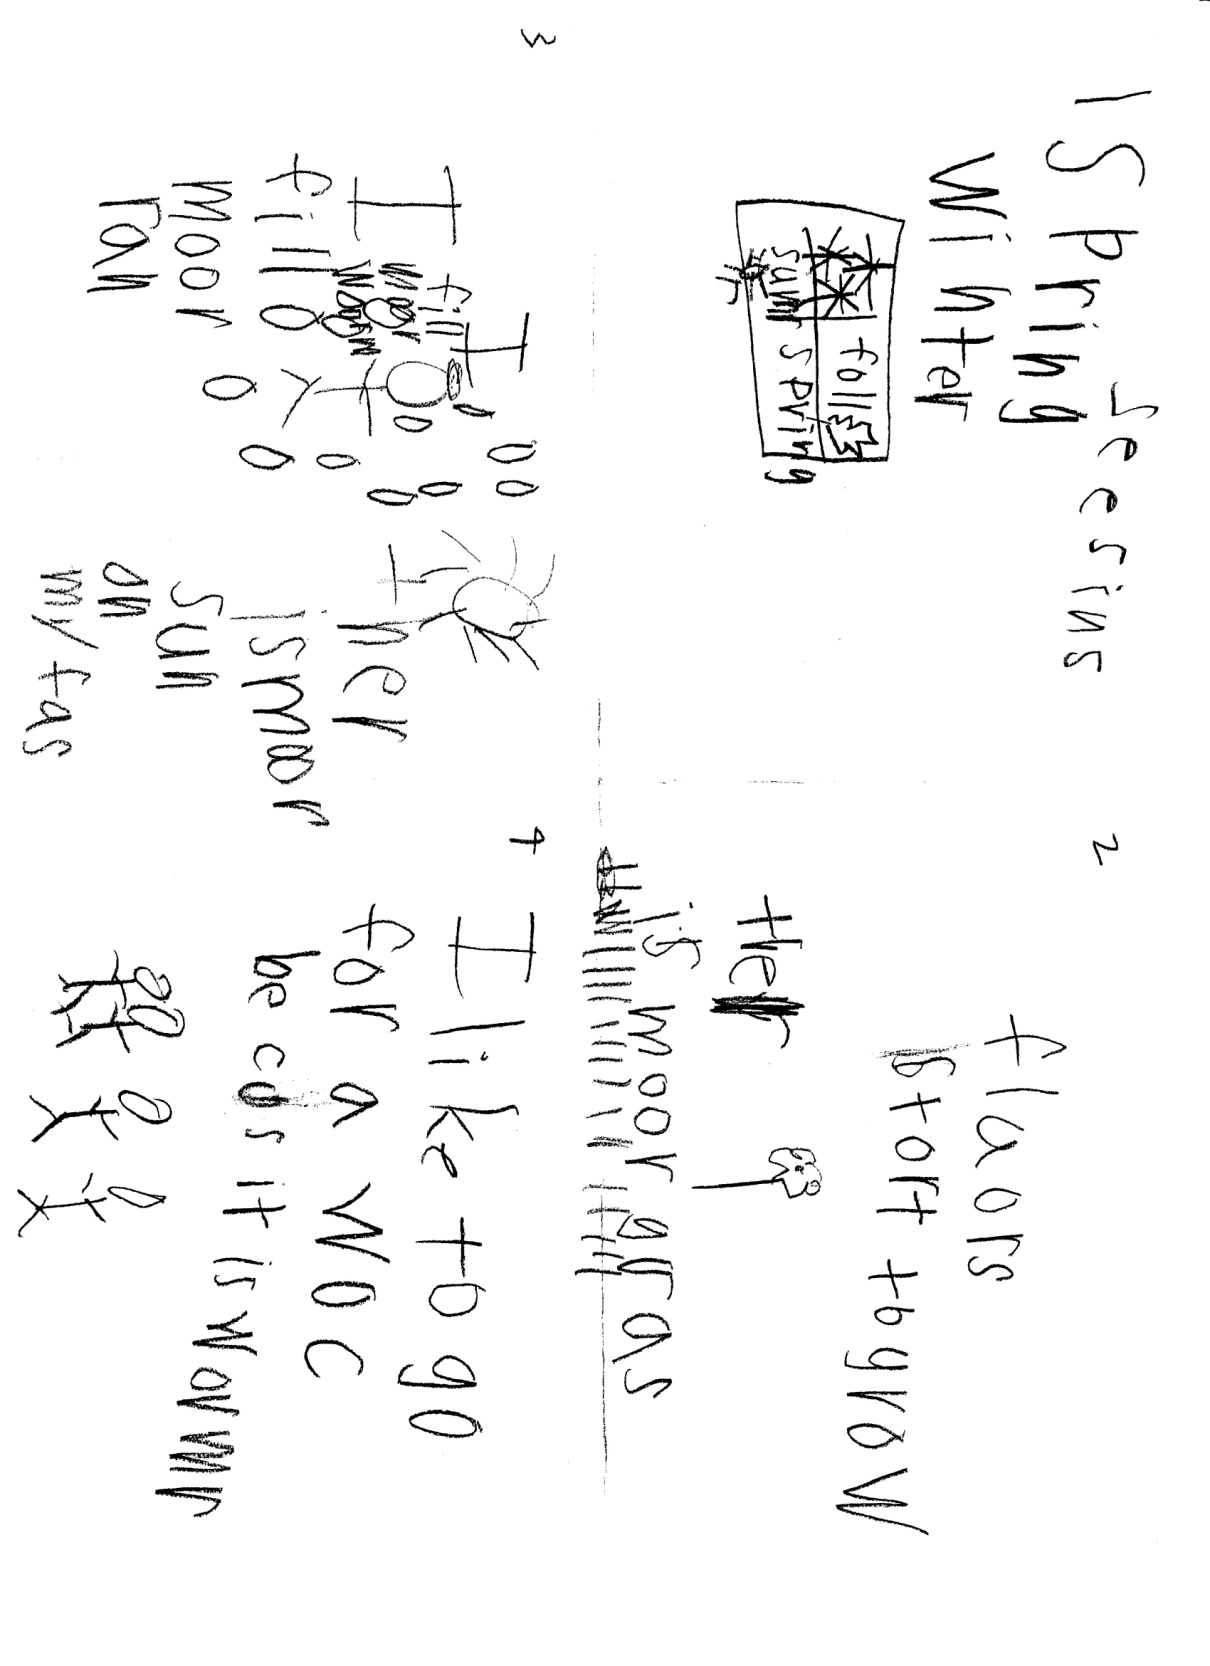 1 Seesins
Spring
Winter
foll
sumr spring
2
flaors
stort to grow
ther
is moor gras
3
I
fill
I
fill
moor
ran
I
her
is moor
sun
on
my fas
4
I like to go
for a woc
be cus it
is wormr